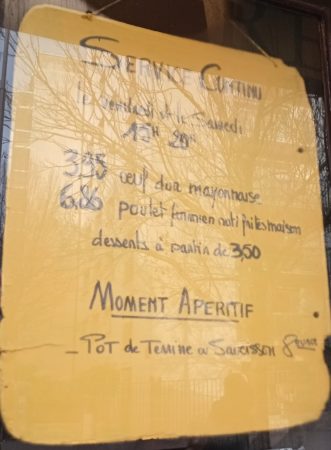 SERVICE CONTINU
le vendredi et le Samedi
12H 20H
3,35 oeuf dur mayonnaise
6,86 poulet fermier roti frites maison
desserts à partir de 3,50
MOMENT APERITIF
- POT de Terrine ou Saucisson